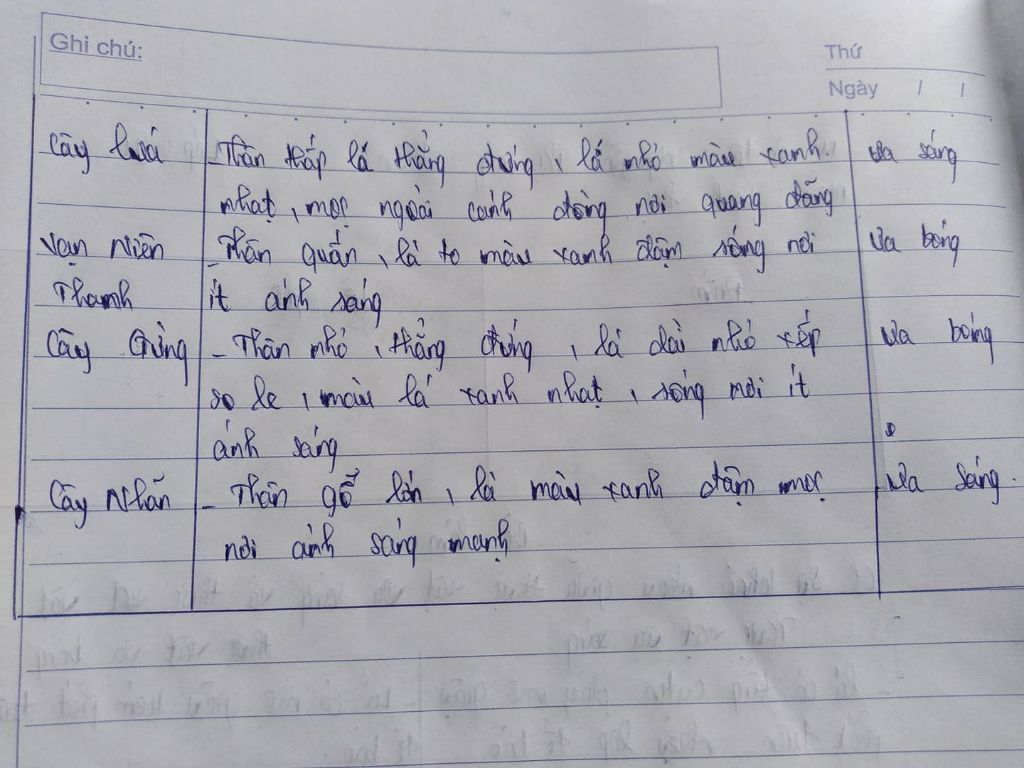 Ghi chú:
Thứ
Ngày / /
Cây lúa - Thân thấp lá thẳng đứng, lá nhỏ màu xanh. Ưa sáng
nhạt, mọc ngoài cánh đồng nơi quang đãng
Vạn Niên - Thân quấn, lá to màu xanh đậm sống nơi Ưa bóng
Thanh ít ánh sáng
Cây Gừng - Thân nhỏ, thẳng đứng, lá dài nhỏ xếp Ưa bóng
so le, màu lá xanh nhạt, sống nơi ít
ánh sáng
Cây Nhãn - Thân gỗ lớn, lá màu xanh đậm mọc Ưa sáng.
nơi ánh sáng mạnh